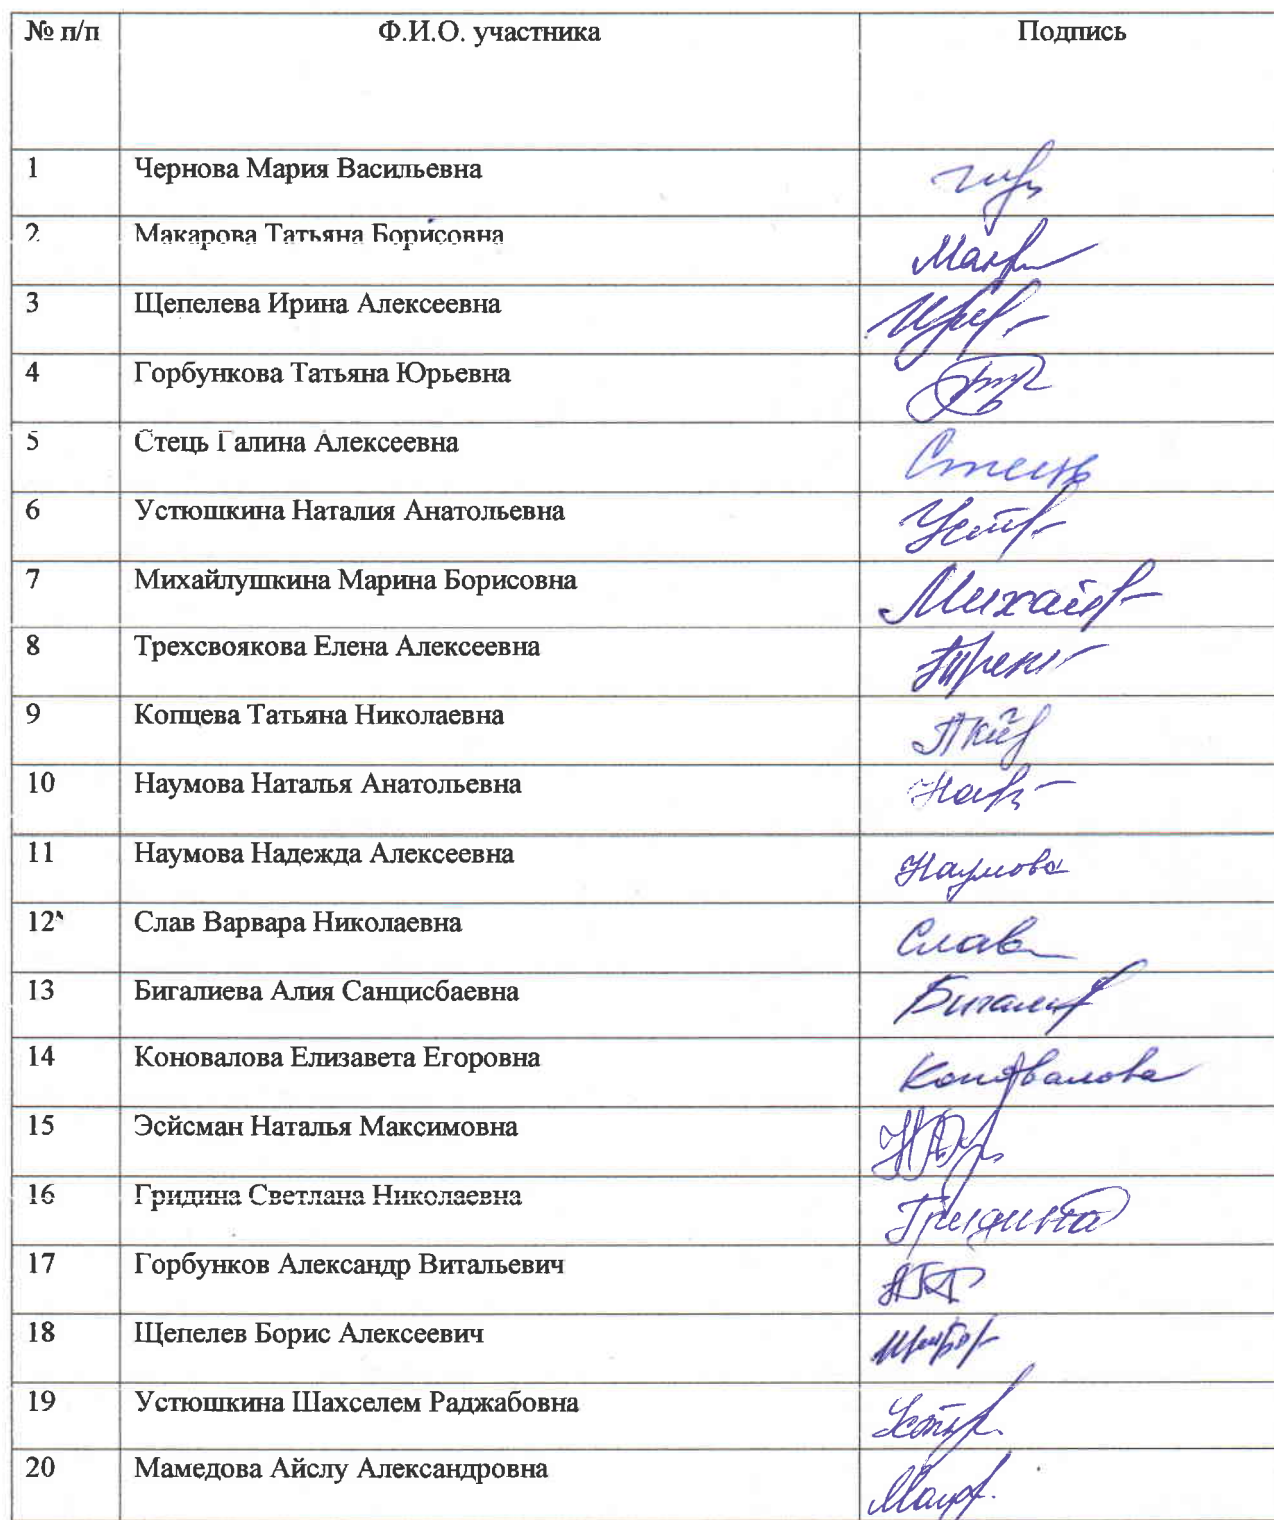 № п/п Ф.И.О. участника Подпись
1 Чернова Мария Васильевна
2 Макарова Татьяна Борисовна
3 Щепелева Ирина Алексеевна
4 Горбункова Татьяна Юрьевна
5 Стець Галина Алексеевна Стець
6 Устюшкина Наталия Анатольевна
7 Михайлушкина Марина Борисовна
8 Трехсвоякова Елена Алексеевна
9 Копцева Татьяна Николаевна
10 Наумова Наталья Анатольевна
11 Наумова Надежда Алексеевна Наумова
12 Слав Варвара Николаевна Слав
13 Бигалиева Алия Санцисбаевна
14 Коновалова Елизавета Егоровна Коновалова
15 Эсйсман Наталья Максимовна
16 Гридина Светлана Николаевна Гридина
17 Горбунков Александр Витальевич
18 Щепелев Борис Алексеевич
19 Устюшкина Шахселем Раджабовна
20 Мамедова Айслу Александровна